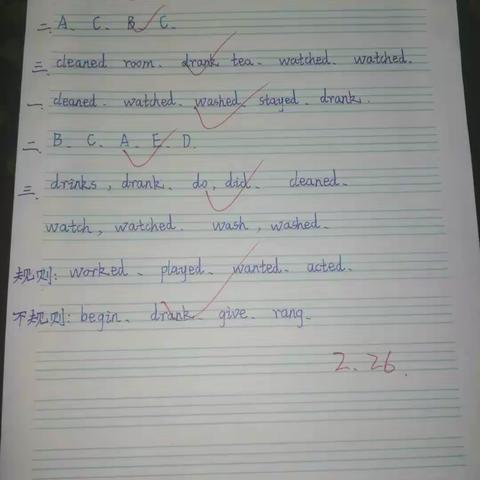 二. A. C. B. C.
三. cleaned room. drank tea. watched. watched.
一. cleaned. watched. washed. stayed. drank.
二. B. C. A. E. D.
三. drinks, drank. do, did. cleaned.
watch, watched. wash, washed.
规则: worked. played. wanted. acted.
不规则: begin. drank. give. rang.
2.26.